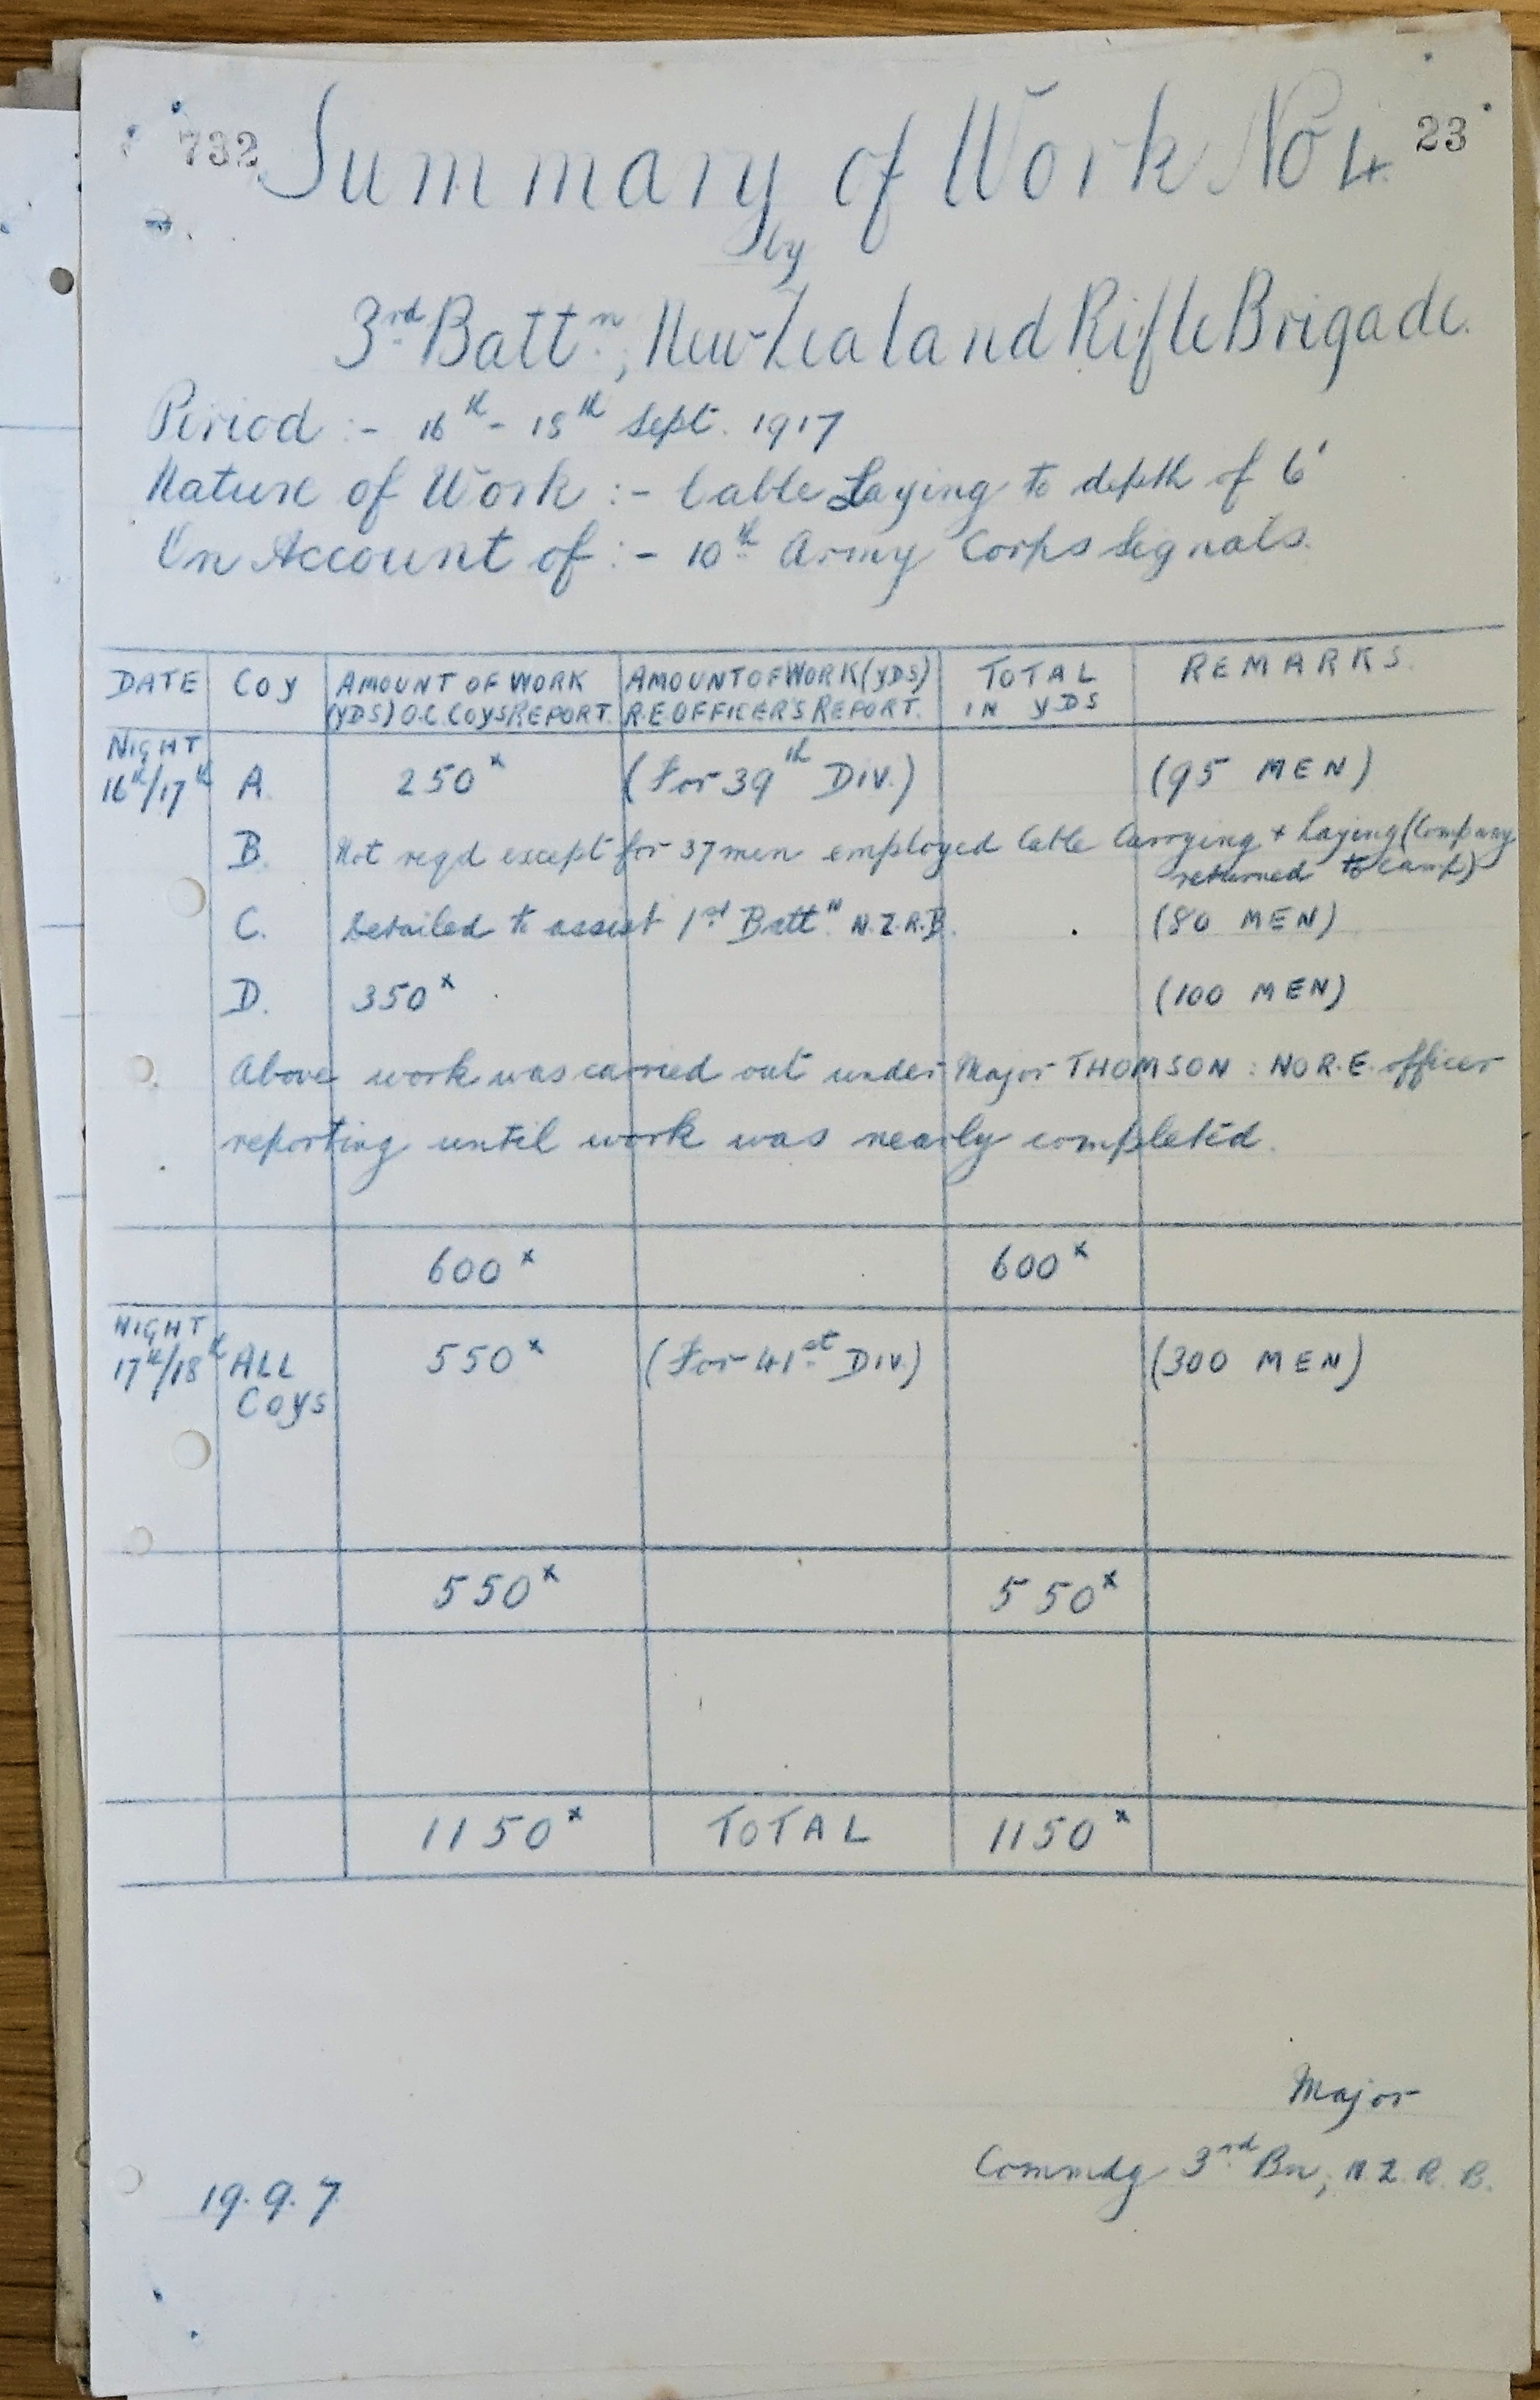 732 Summary of Work No 4. 23
by
3rd Battn, New Zealand Rifle Brigade.
Period :- 16th - 18th Sept. 1917
Nature of Work :- Cable Laying to depth of 6'
On Account of :- 10th Army Corps Signals.
DATE COY AMOUNT OF WORK (YDS) O.C. COYS REPORT. AMOUNT OF WORK (YDS) R.E. OFFICER'S REPORT. TOTAL IN YDS REMARKS.
NIGHT
16th/17th A. 250x (For 39th DIV.) (95 MEN)
B. Not reqd except for 37 men employed Cable Carrying + Laying (Company
returned to camp)
C. Detailed to assist 1st Battn N.Z.R.B. (80 MEN)
D. 350x (100 MEN)
Above work was carried out under Major THOMSON : NO R.E. officer
reporting until work was nearly completed.
600x 600x
NIGHT
17th/18th ALL COYS 550x (For 41st DIV.) (300 MEN)
550x 550x
1150x TOTAL 1150x
Major
Commdg 3rd Bn, N.Z.R.B.
19.9.7